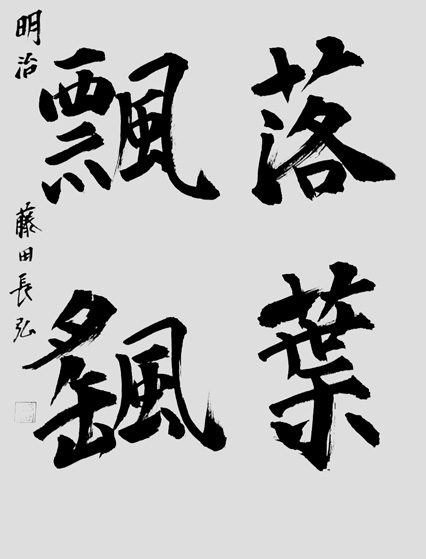 落葉
飄颻
明治
藤田長弘